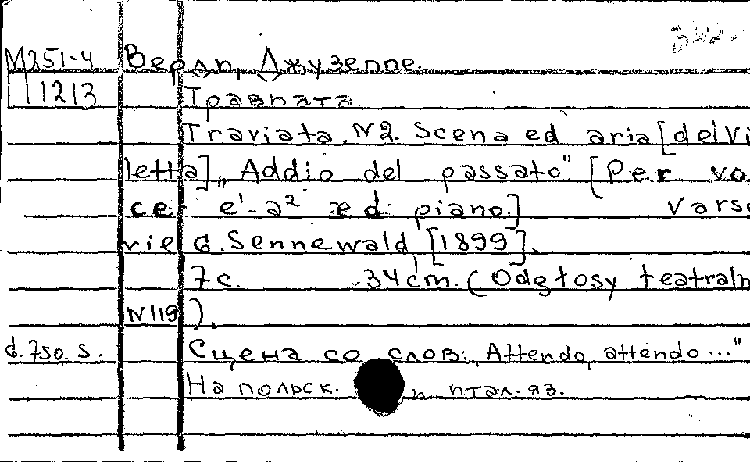 М251-4 Верди, Джузеппе.
11213 Травиата
Traviata. N2. Scena ed aria [del Vi
letta] „Addio del passato" [Per vo
ce e¹-a² ed piano] Varso
vie G. Sennewald, [1899].
7 с. 34 cm. (Odgłosy teatraln
N119).
d. 750. s. Сцена со слов: „Attendo, attendo..."
На польск. и итал. яз.